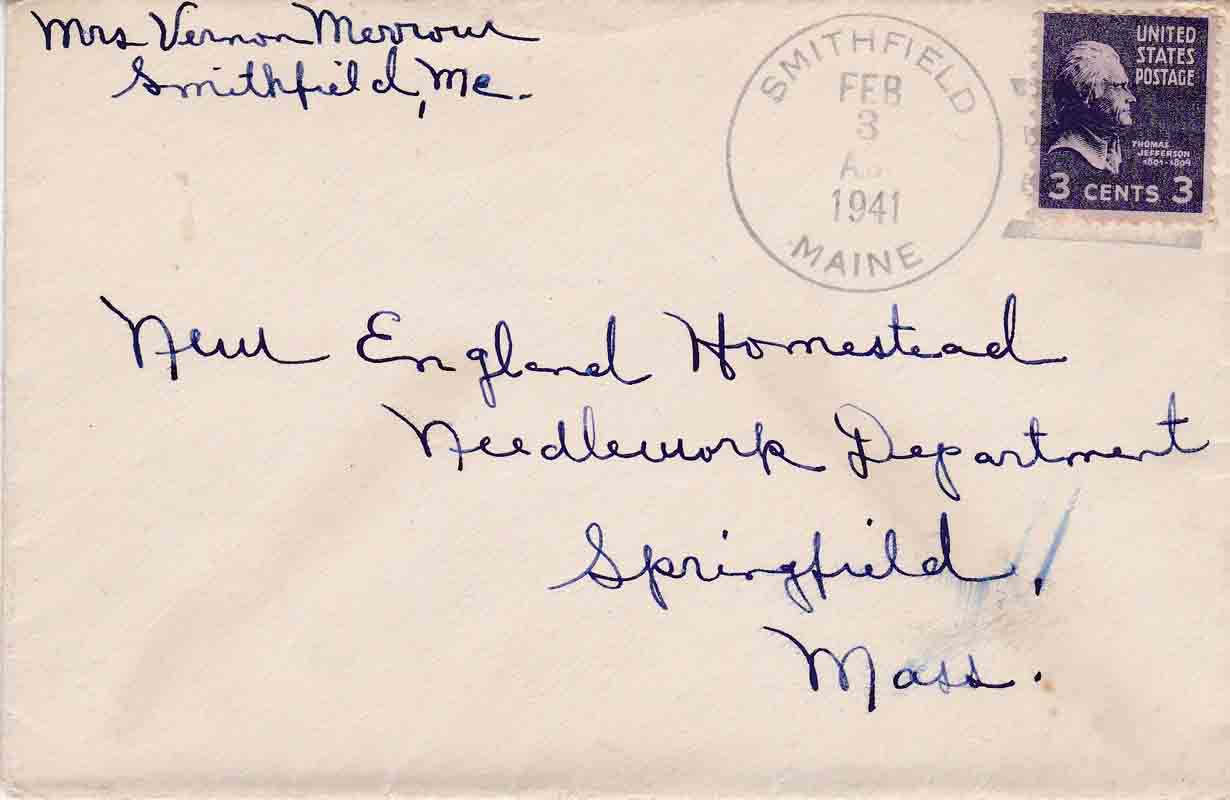 Mrs Vernon Merrow
Smithfield, Me.
SMITHFIELD
FEB
3
1941
MAINE
UNITED
STATES
POSTAGE
THOMAS
JEFFERSON
1801-1809
3 CENTS 3
New England Homestead
Needlework Department
Springfield,
Mass.